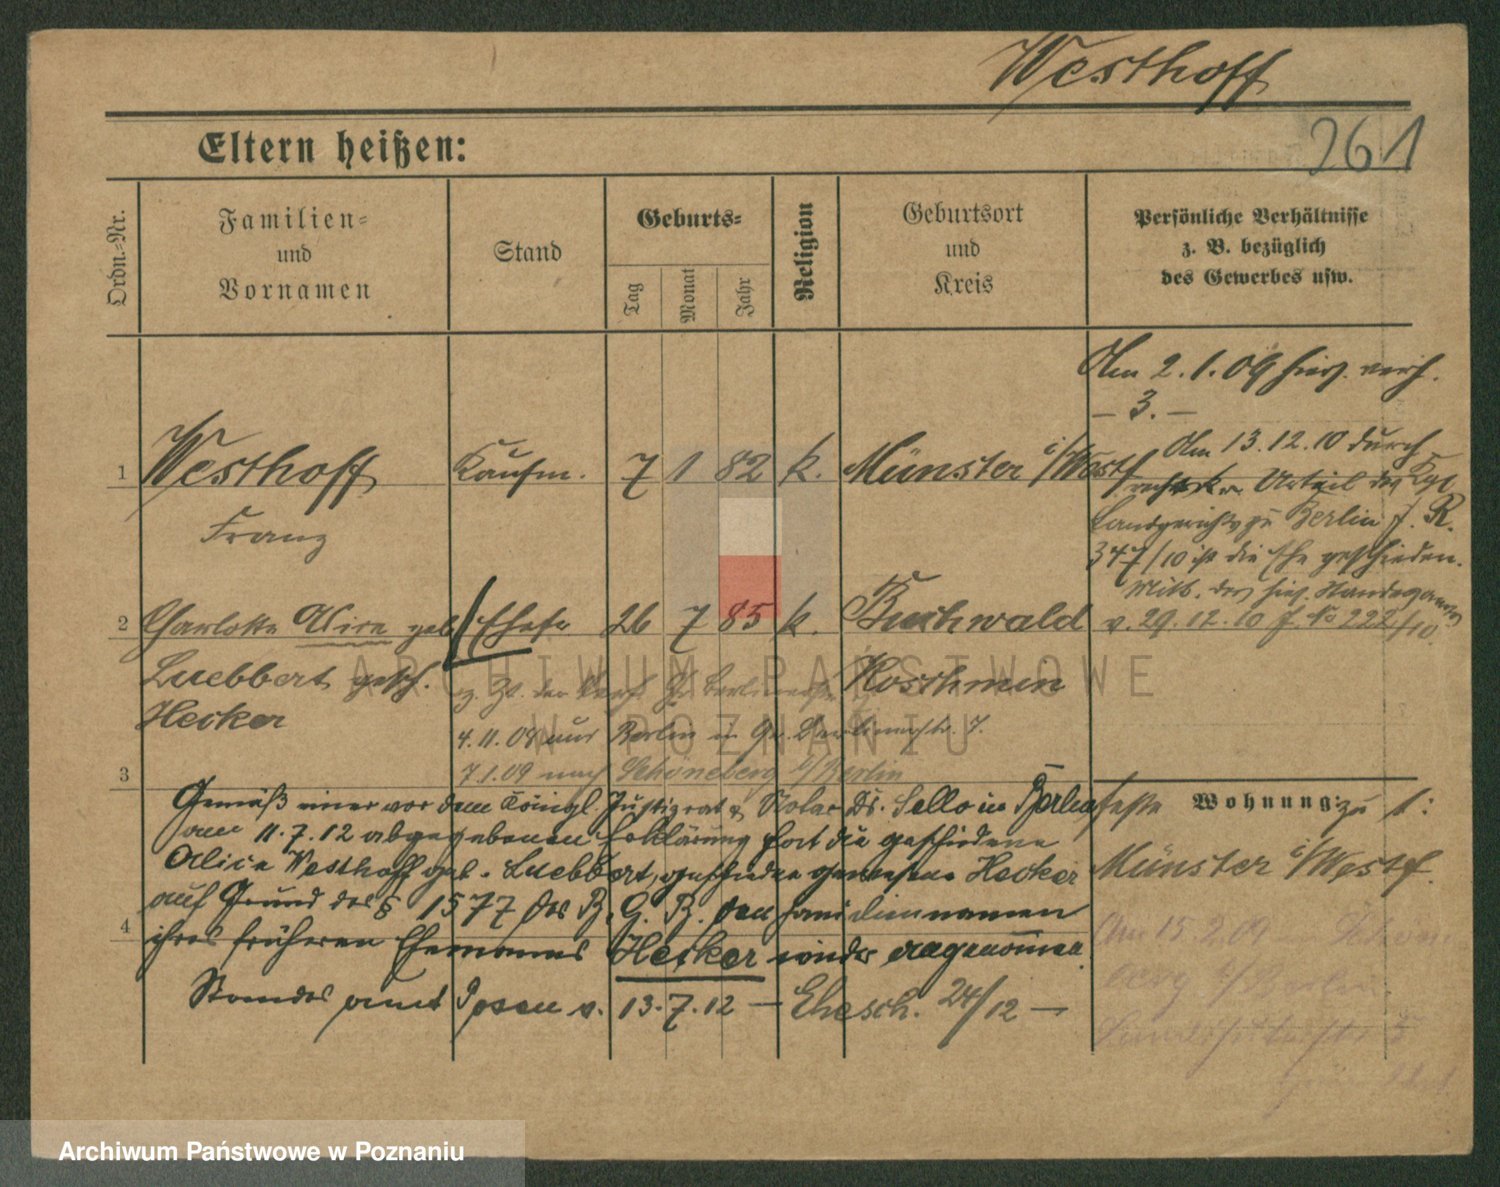 Westhoff
261
Eltern heißen:
Ordn.-Nr.
Familien-
und
Vornamen
Stand
Geburts-
Tag
Monat
Jahr
Religion
Geburtsort
und
Kreis
Persönliche Verhältnisse
z. B. bezüglich
des Gewerbes usw.
Am 2. 1. 09 hier verh.
– 3. –
1 Westhoff Kaufm. 7 1 82 k. Münster i/Westf
Franz
Am 13. 12. 10 durch
Urteil des Kgl
Landgerichts zu Berlin f. R.
347/10 ist die Ehe geschieden.
Mitt. des hies. Standesamtes
v. 29. 12. 10 f. No 222/10.
2 Charlotte Alice geb Ehefr 26 7 85 k. Buchwald
Luebbert gesch. Koschmin
Hecker
4. 11. 08 aus Berlin
7. 1. 09 nach Schöneberg b/Berlin
3
Gemäß einer vor dem Königl. Justizrat & Notar Dr. Sello in Berlin
am 11. 7. 12 abgegebenen Erklärung hat die geschiedene
Alice Westhoff geb. Luebbert, geschieden gewesene Hecker
auf Grund des § 1577 des B. G. B. den Familiennamen
4
ihres früheren Ehemannes Hecker wieder angenommen.
Standesamt Posen v. 13. 7. 12 – Ehesch. 24/12 –
feste Wohnung: zu 1:
Münster i/Westf.
Am 15 2. 09
berg b/Berlin
ARCHIWUM PAŃSTWOWE
W POZNANIU
Archiwum Państwowe w Poznaniu